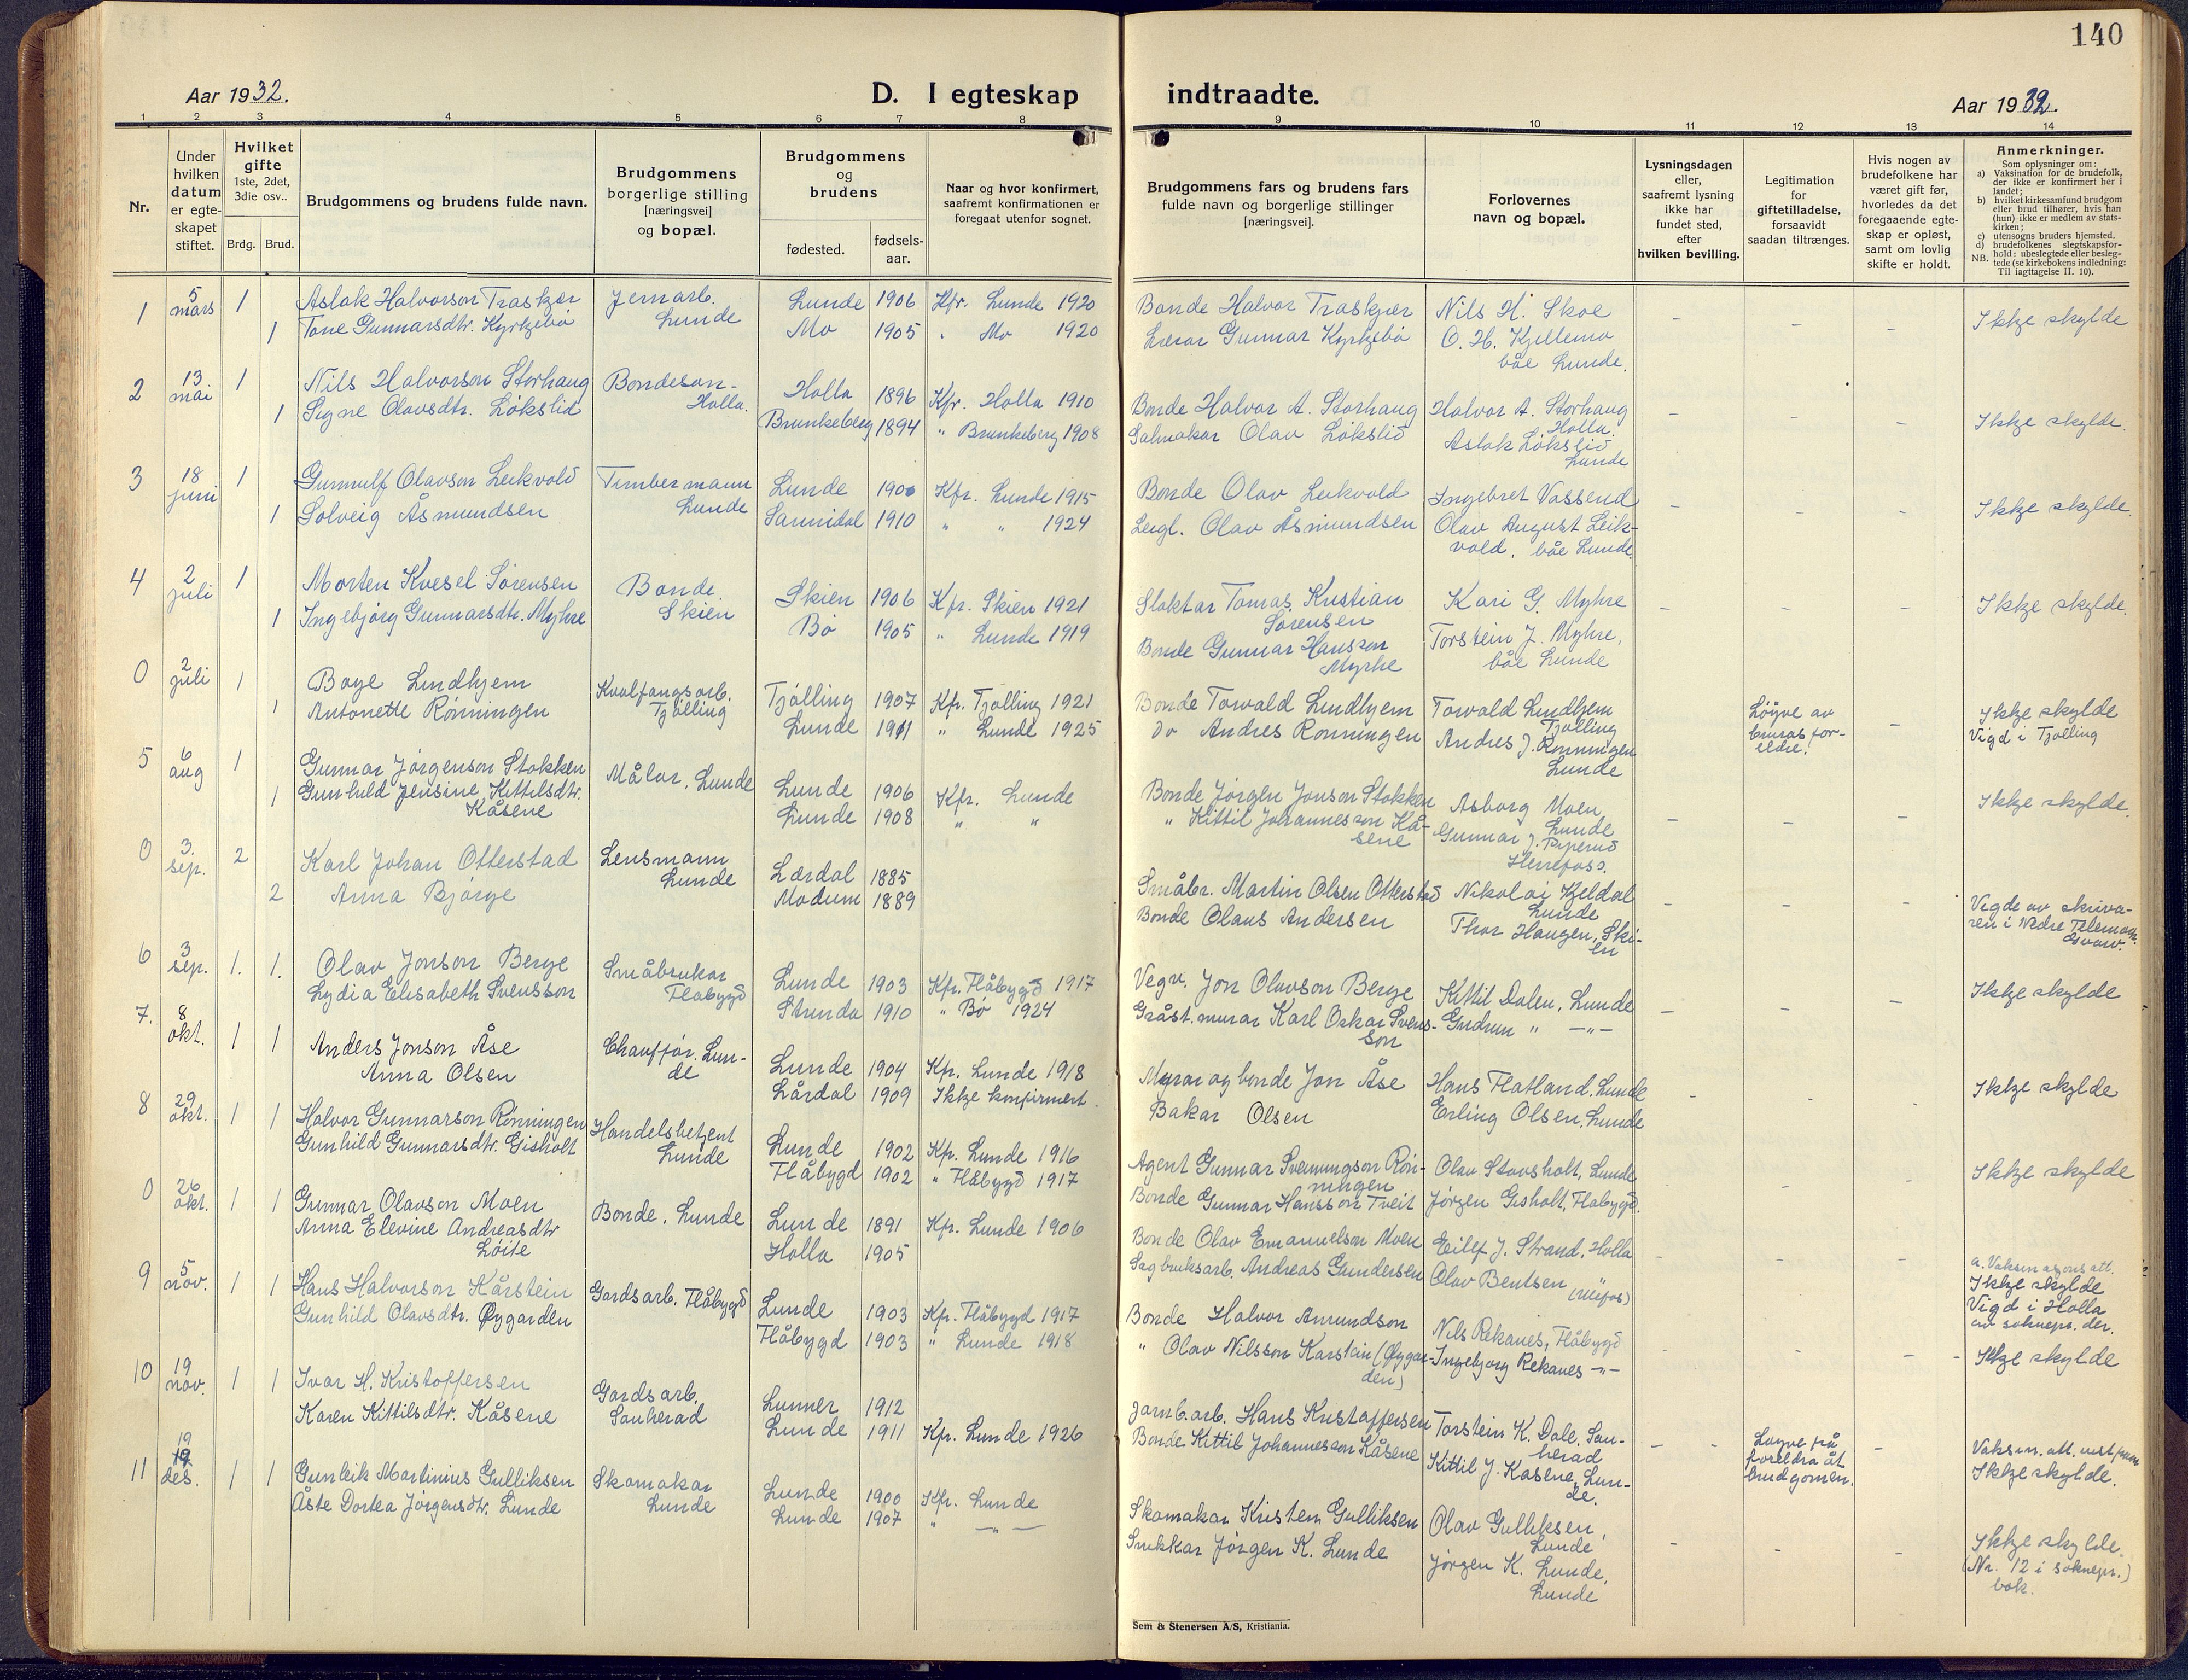 140
Aar 1932.
D. I egteskap indtraadte.
Aar 1932.
1 2 3 4 5 6 7 8 9 10 11 12 13 14
Nr.
Under hvilken datum er egteskapet stiftet.
Hvilket gifte 1ste, 2det, 3die osv..
Brdg. Brud.
Brudgommens og brudens fulde navn.
Brudgommens borgerlige stilling [næringsvei] og bopæl.
Brudgommens og brudens
fødested. fødsels-aar.
Naar og hvor konfirmert, saafremt konfirmationen er foregaat utenfor sognet.
Brudgommens fars og brudens fars fulde navn og borgerlige stillinger [næringsvei].
Forlovernes navn og bopæl.
Lysningsdagen eller, saafremt lysning ikke har fundet sted, efter hvilken bevilling.
Legitimation for giftetilladelse, forsaavidt saadan tiltrænges.
Hvis nogen av brudefolkene har været gift før, hvorledes da det foregaaende egteskap er opløst, samt om lovlig skifte er holdt.
Anmerkninger.
Som oplysninger om:
a) Vaksination for de brudefolk, der ikke er konfirmert her i landet;
b) hvilket kirkesamfund brudgom eller brud tilhører, hvis han (hun) ikke er medlem av statskirken;
c) utensogns bruders hjemsted.
d) brudefolkenes slegtskapsforhold: ubeslegtede eller beslegtede (se kirkebokens indledning: NB. Til iagttagelse II. 10).
1 5 mars 1 Aslak Halvorson Traskjær Jernarb. Lunde Lunde 1906 Kfr. Lunde 1920 Bonde Halvor Traskjær Nils H. Skoe - - - Ikkje skylde
1 Tone Gunnarsdtr. Kyrkjebø Mo 1905 " Mo 1920 Lærar Gunnar Kyrkjebø O. H. Kjellemo
båe Lunde.
2 13 mai 1 Nils Halvorson Storhaug Bondeson - Holla. Holla 1896 Kfr. Holla 1910 Bonde Halvor A. Storhaug Halvor A. Storhaug Holla. - - - Ikkje skylde.
1 Signe Olavsdtr. Løkslid Brunkeberg 1894 " Brunkeberg 1908 Salmakar Olav Løkslid Aslak Løkslid Lunde
3 18 juni 1 Gunnulf Olavson Leikvold Timbermann Lunde Lunde 1900 Kfr. Lunde 1915 Bonde Olav Leikvold Ingebret Vassend - - - Ikkje skylde.
1 Solveig Åsmundsen Sannidal 1910 " " 1924 Leigl. Olav Åsmundsen Olav August Leikvold, båe Lunde.
4 2 juli 1 Morten Kvesel Sørensen Bonde. Skien Skien 1906 Kfr. Skien 1921 Slaktar Tomas Kristian Sørensen Kari G. Myhre - - - Ikkje skylde.
1 Ingebjørg Gunnarsdtr. Myhre Bø 1905 " Lunde 1919 Bonde Gunnar Hansson Myrhe Torstein J. Myhre, båe Lunde
0 2 juli 1 Boye Lindhjem Kvalfangsarb. Tjølling Tjølling 1907 Kfr. Tjølling 1921 Bonde Torvald Lindhjem Torvald Lindhjem Tjølling Løyve av bruras foreldre. - Ikkje skylde
1 Antonette Rønningen Lunde 1911 " Lunde 1925 do Andres Rønningen Andres J. Rønningen Lunde Vigd i Tjølling
5 6 aug 1 Gunnar Jørgenson Stokken Målar, Lunde Lunde 1906 Kfr. Lunde Bonde Jørgen Jonson Stokken Asborg Moen Lunde - - - Ikkje skylde.
1 Gunhild Jensine Kittilsdtr. Kåsene Lunde 1908 " " " Kittil Johannesson Kåsene Gunnar J. Herrefoss.
0 3. sep. 2 Karl Johan Otterstad Lensmann Lunde Lærdal 1885 Småbr. Martin Olsen Otterstad Nikolai Kjeldal Lunde - - - Vigde av skrivaren i Nedre Telemark
2 Anna Bjørge Modum 1889 Bonde Olaus Andersen Thor Haugen, Skien
6 3 sep. 1. 1. Olav Jonson Berge Småbrukar Flåbygd Lunde 1903 Kfr. Flåbygd 1917 Vegv. Jon Olavson Berge Kittil Dalen, Lunde - - - Ikkje skylde
Lydia Elisabeth Svensson Strinda 1910 " Bø 1924 Gråst.murar Karl Oskar Svensson Gudrun " -"-
7. 8 okt. 1 1 Anders Jonson Åse Chauffør. Lunde Lunde 1904 Kfr. Lunde 1918 Murar og bonde Jon Åse Hans Flatland, Lunde - - - Ikkje skylde
Anna Olsen Lårdal 1909 Ikkje konfirmert. Bakar Olsen Erling Olsen, Lunde
8 29 okt. 1 1 Halvor Gunnarson Rønningen Handelsbetjent Lunde Lunde 1902 Kfr. Lunde 1916 Agent Gunnar Svenningson Rønningen Olav Stavsholt, Lunde - - - Ikkje skylde
Gunhild Gunnarsdtr. Gisholt Flåbygd 1902 " Flåbygd 1917 Bonde Gunnar Hansson Tveit Jørgen Gisholt, Flåbygd.
0 26 okt. 1 1 Gunnar Olavson Moen Bonde, Lunde Lunde 1891 Kfr. Lunde 1906 Bonde Olav Emanuelson Moen Eilef J. Strand, Holla - - - a. Vaksinasjons att.
Anna Elevine Andreasdtr Løite Holla 1905 Sagbruksarb. Andreas Gundersen Olav Bentsen " (Ulefos) Ikkje skylde Vigd i Holla av soknepr. der.
9 5 nov. 1 1 Hans Halvorson Kårstein Gardsarb. Flåbygd Lunde 1903 Kfr. Flåbygd 1917 Bonde Halvor Amundson Nils Rekanes, Flåbygd - - - Ikkje skylde
Gunhild Olavsdtr. Øygarden Flåbygd 1903 " Lunde 1918 " Olav Nilsson Karstein (Øygarden) Ingebjørg Rekanes -"-
10 19 nov. 1 1 Ivar H. Kristoffersen Gardsarb. Sauherad Lunner 1912 Jarnb.arb. Hans Kristoffersen Torstein K. Dale, Sauherad - - Løyve frå foreldra åt brudgomen. - Vaksin. att.
Karen Kittilsdtr. Kåsene Lunde 1911 Kfr. Lunde 1926 Bonde Kittil Johannesson Kåsene Kittil J. Kåsene, Lunde. Ikkje skylde.
11 19 des. 1 1 Gunleik Martinius Gulliksen Skomakar Lunde Lunde 1900 Kfr. Lunde Skomakar Kristen Gulliksen Olav Gulliksen, Lunde - - - Ikkje skylde.
Åste Dortea Jørgensdtr. Lunde Lunde 1907 " -"- Snikkar Jørgen K. Lunde Jørgen K. Lunde, Lunde (Nr. 12 i soknepr. bok.)
Sem & Stenersen A/S, Kristiania.